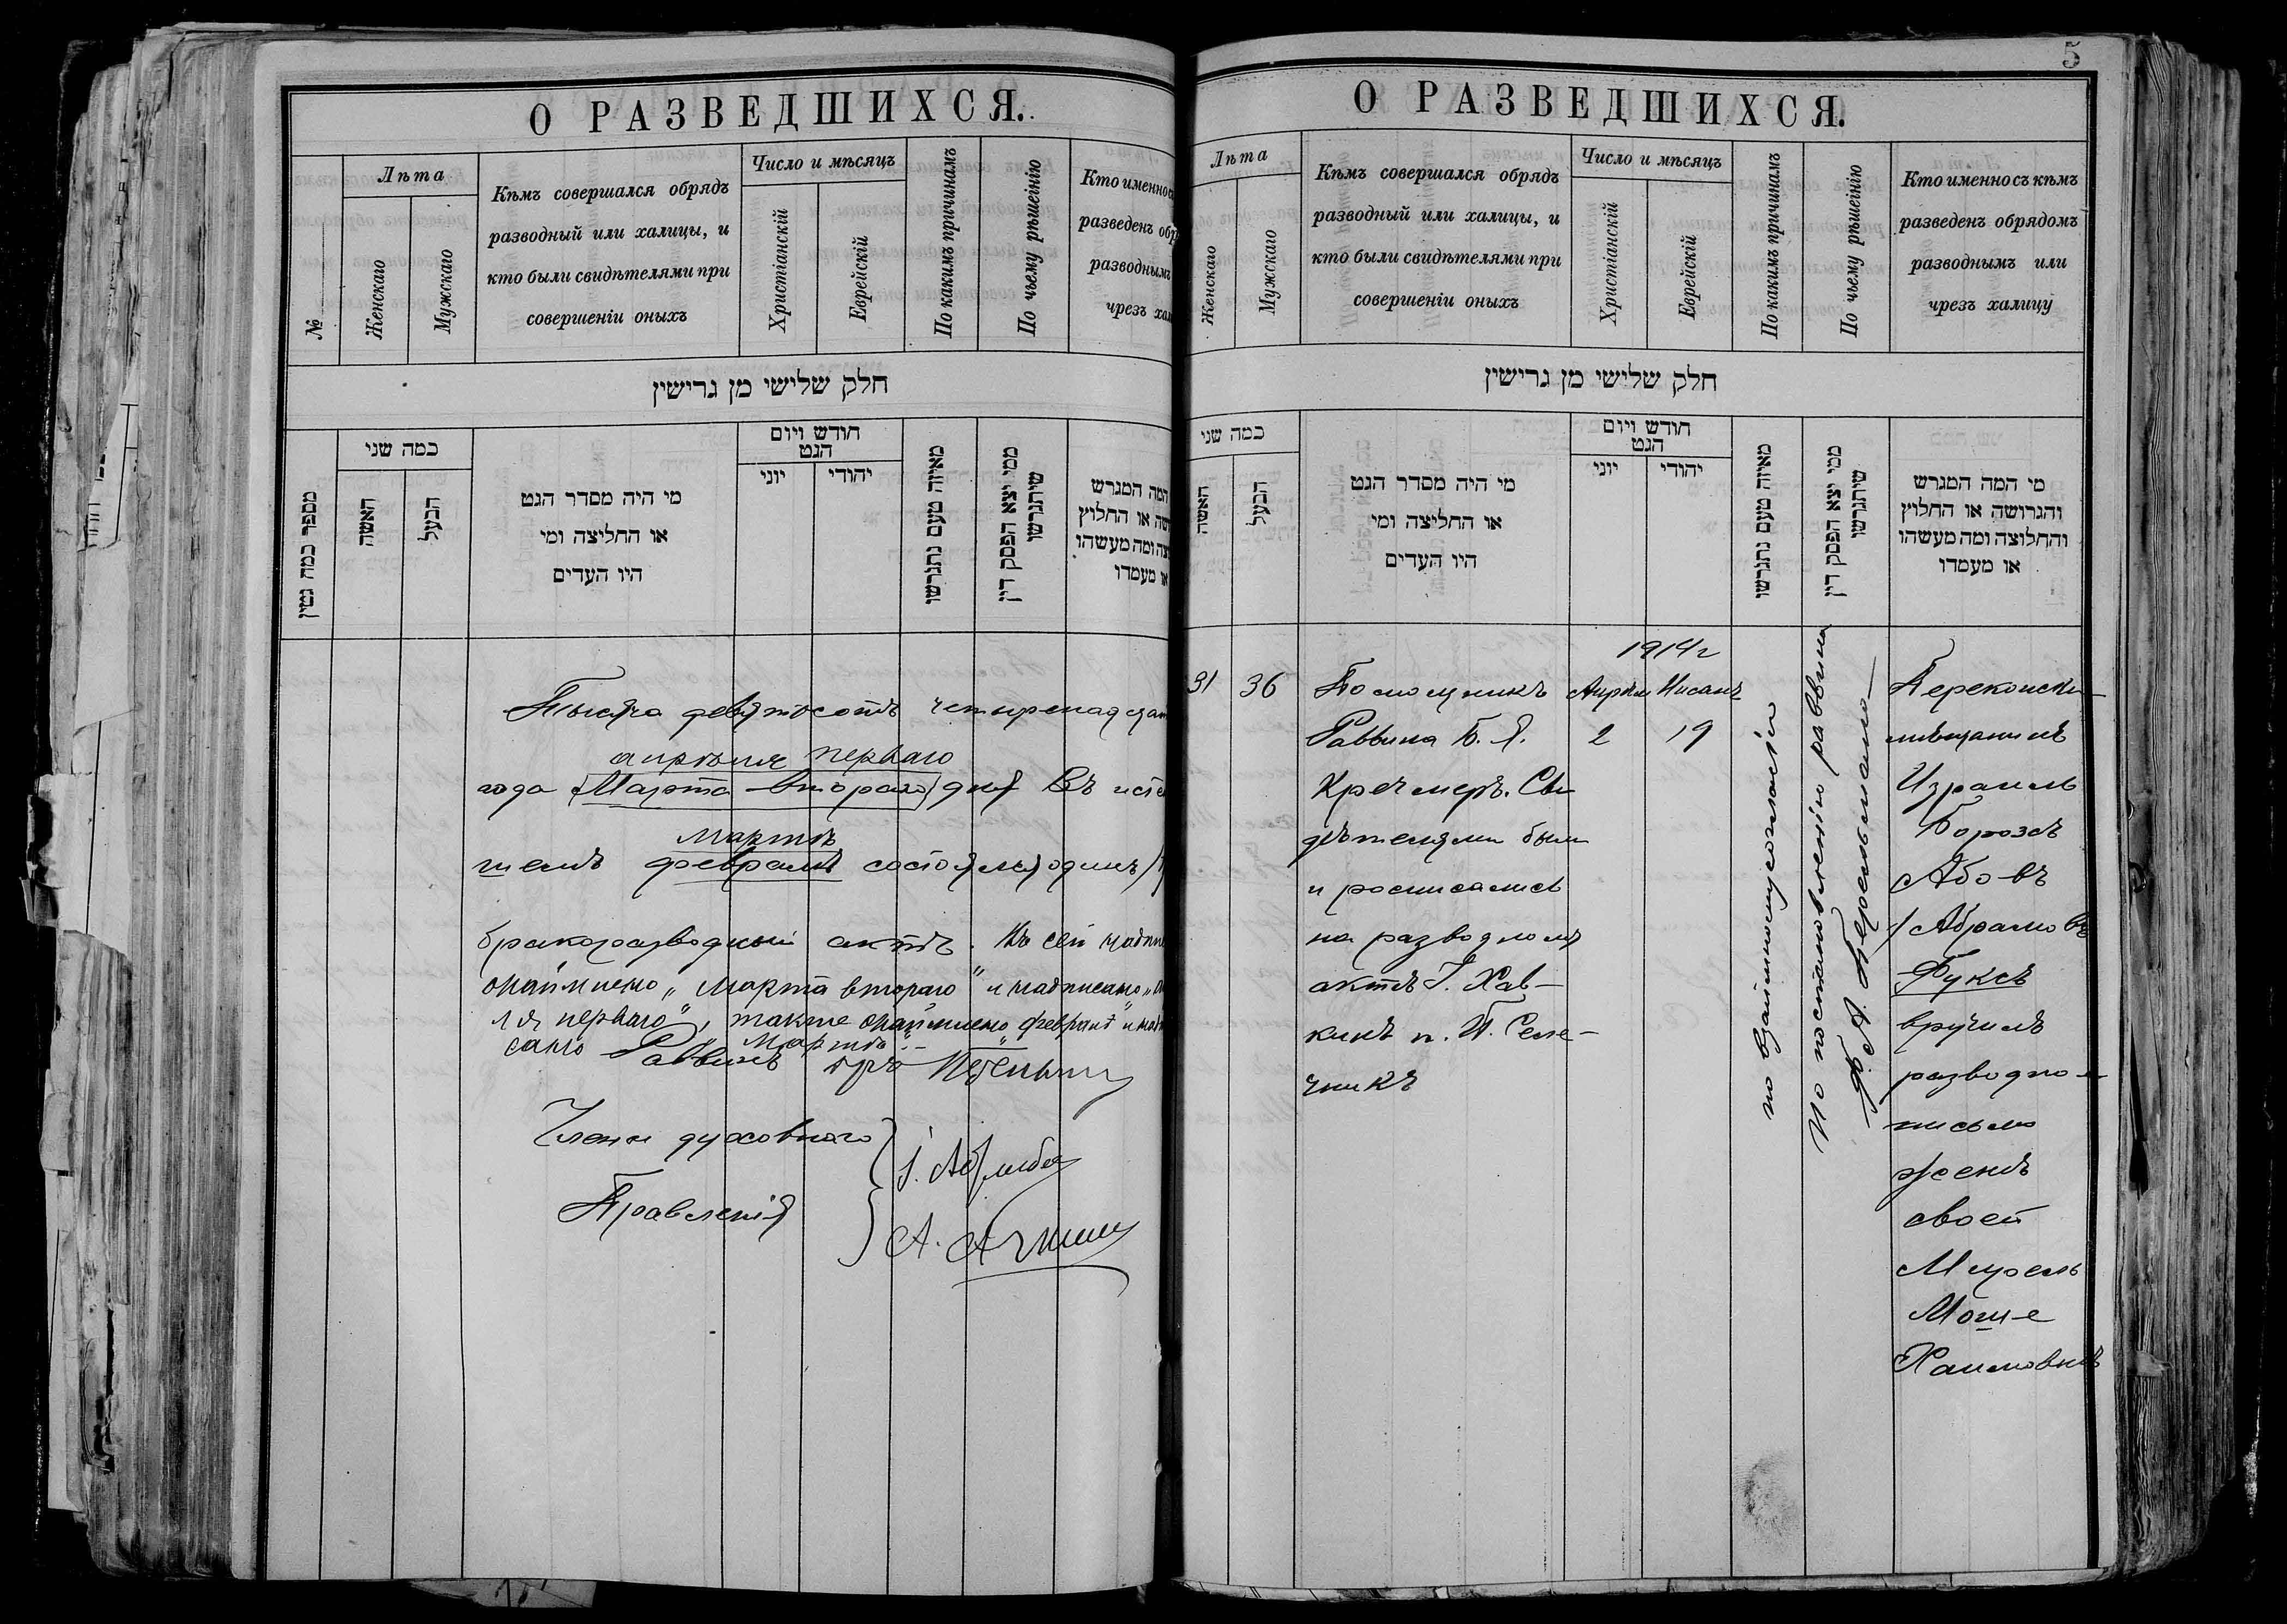 О РАЗВЕДШИХСЯ.
№
Лѣта
Женскаго
Мужскаго
Кѣмъ совершался обрядъ
разводный или халицы, и
кто были свидѣтелями при
совершеніи оныхъ
Число и мѣсяцъ
Христіанскій
Еврейскій
По какимъ причинамъ
По чьему рѣшеінію
Кто именно съ
разведенъ обр
разводнымъ
чрезъ хал
חלק שלישי מן גרישין
מספר כמה גטין
כמה שני
האשה
הבעל
מי היה מסדר הגט
או החליצה ומי
היו העדים
חודש ויום
הגט
יוני
יהודי
מאיזה טעם נתגרשו
ממי יצא הפסק דין
שיתגרשו
המה המגרש
שה או החלוץ
צה ומה מעשהו
או מעמדו
Тысяча девятьсотъ четыренадцат
апрѣля перваго
года Марта второго дня Въ исте
мартѣ
шемъ февралѣ состоялся одинъ /1
бракоразводный актъ. На сей надпи
окаймлено „Марта второго" и надписано „а
ля перваго", также окаймлено февралѣ и надп
сано мартѣ".
Раввинъ
Члены духовного
Правленія
5
О РАЗВЕДШИХСЯ.
Лѣта
Женскаго
Мужскаго
Кѣмъ совершался обрядъ
разводный или халицы, и
кто были свидѣтелями при
совершеніи оныхъ
Число и мѣсяцъ
Христіанскій
Еврейскій
По какимъ причинамъ
По чьему рѣшеінію
Кто именно съ кѣмъ
разведенъ обрядомъ
разводнымъ или
чрезъ халицу
חלק שלישי מן גרישין
כמה שני
האשה
הבעל
מי היה מסדר הגט
או החליצה ומי
היו העדים
חודש ויום
הגט
יוני
יהודי
מאיזה טעם נתגרשו
ממי יצא הפסק דין
שיתגרשו
מי המה המגרש
והגרושה או החלוץ
והחלוצה ומה מעשהו
או מעמדו
31
36
Помощникъ
Раввина Б. Я.
Кречмеръ. Сви
дѣтелями были
и росписались
на разводномъ
актѣ I. Хав-
кинъ и. П. Селе-
чникъ
1914г
Апрѣля Нисанъ
2 19
по взаимному согласію
По постановленію раввина
Ф. А. Перельмана
Перекопски
мѣщанинъ
Израиль
Борохъ
Абовъ
/Абрамовъ
Фуксъ
вручилъ
разводное
письмо
женѣ
своей
Мирель
Моше
Хаимовнѣ